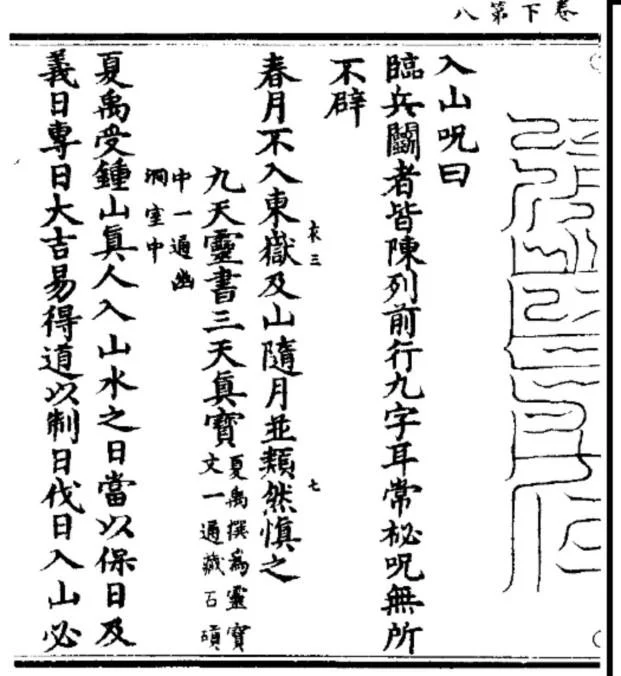 卷下第八
入山呪曰
臨兵鬭者皆陳列前行九字耳常秘呪無所
不辟
衣三 七
春月不入東嶽及山隨月並類然慎之
九天靈書三天眞寶
夏禹撰爲靈寶
文一通藏石磧
中一通幽
洞室中
夏禹受鍾山眞人入山水之日當以保日及
義日專日大吉易得道以制日伐日入山必